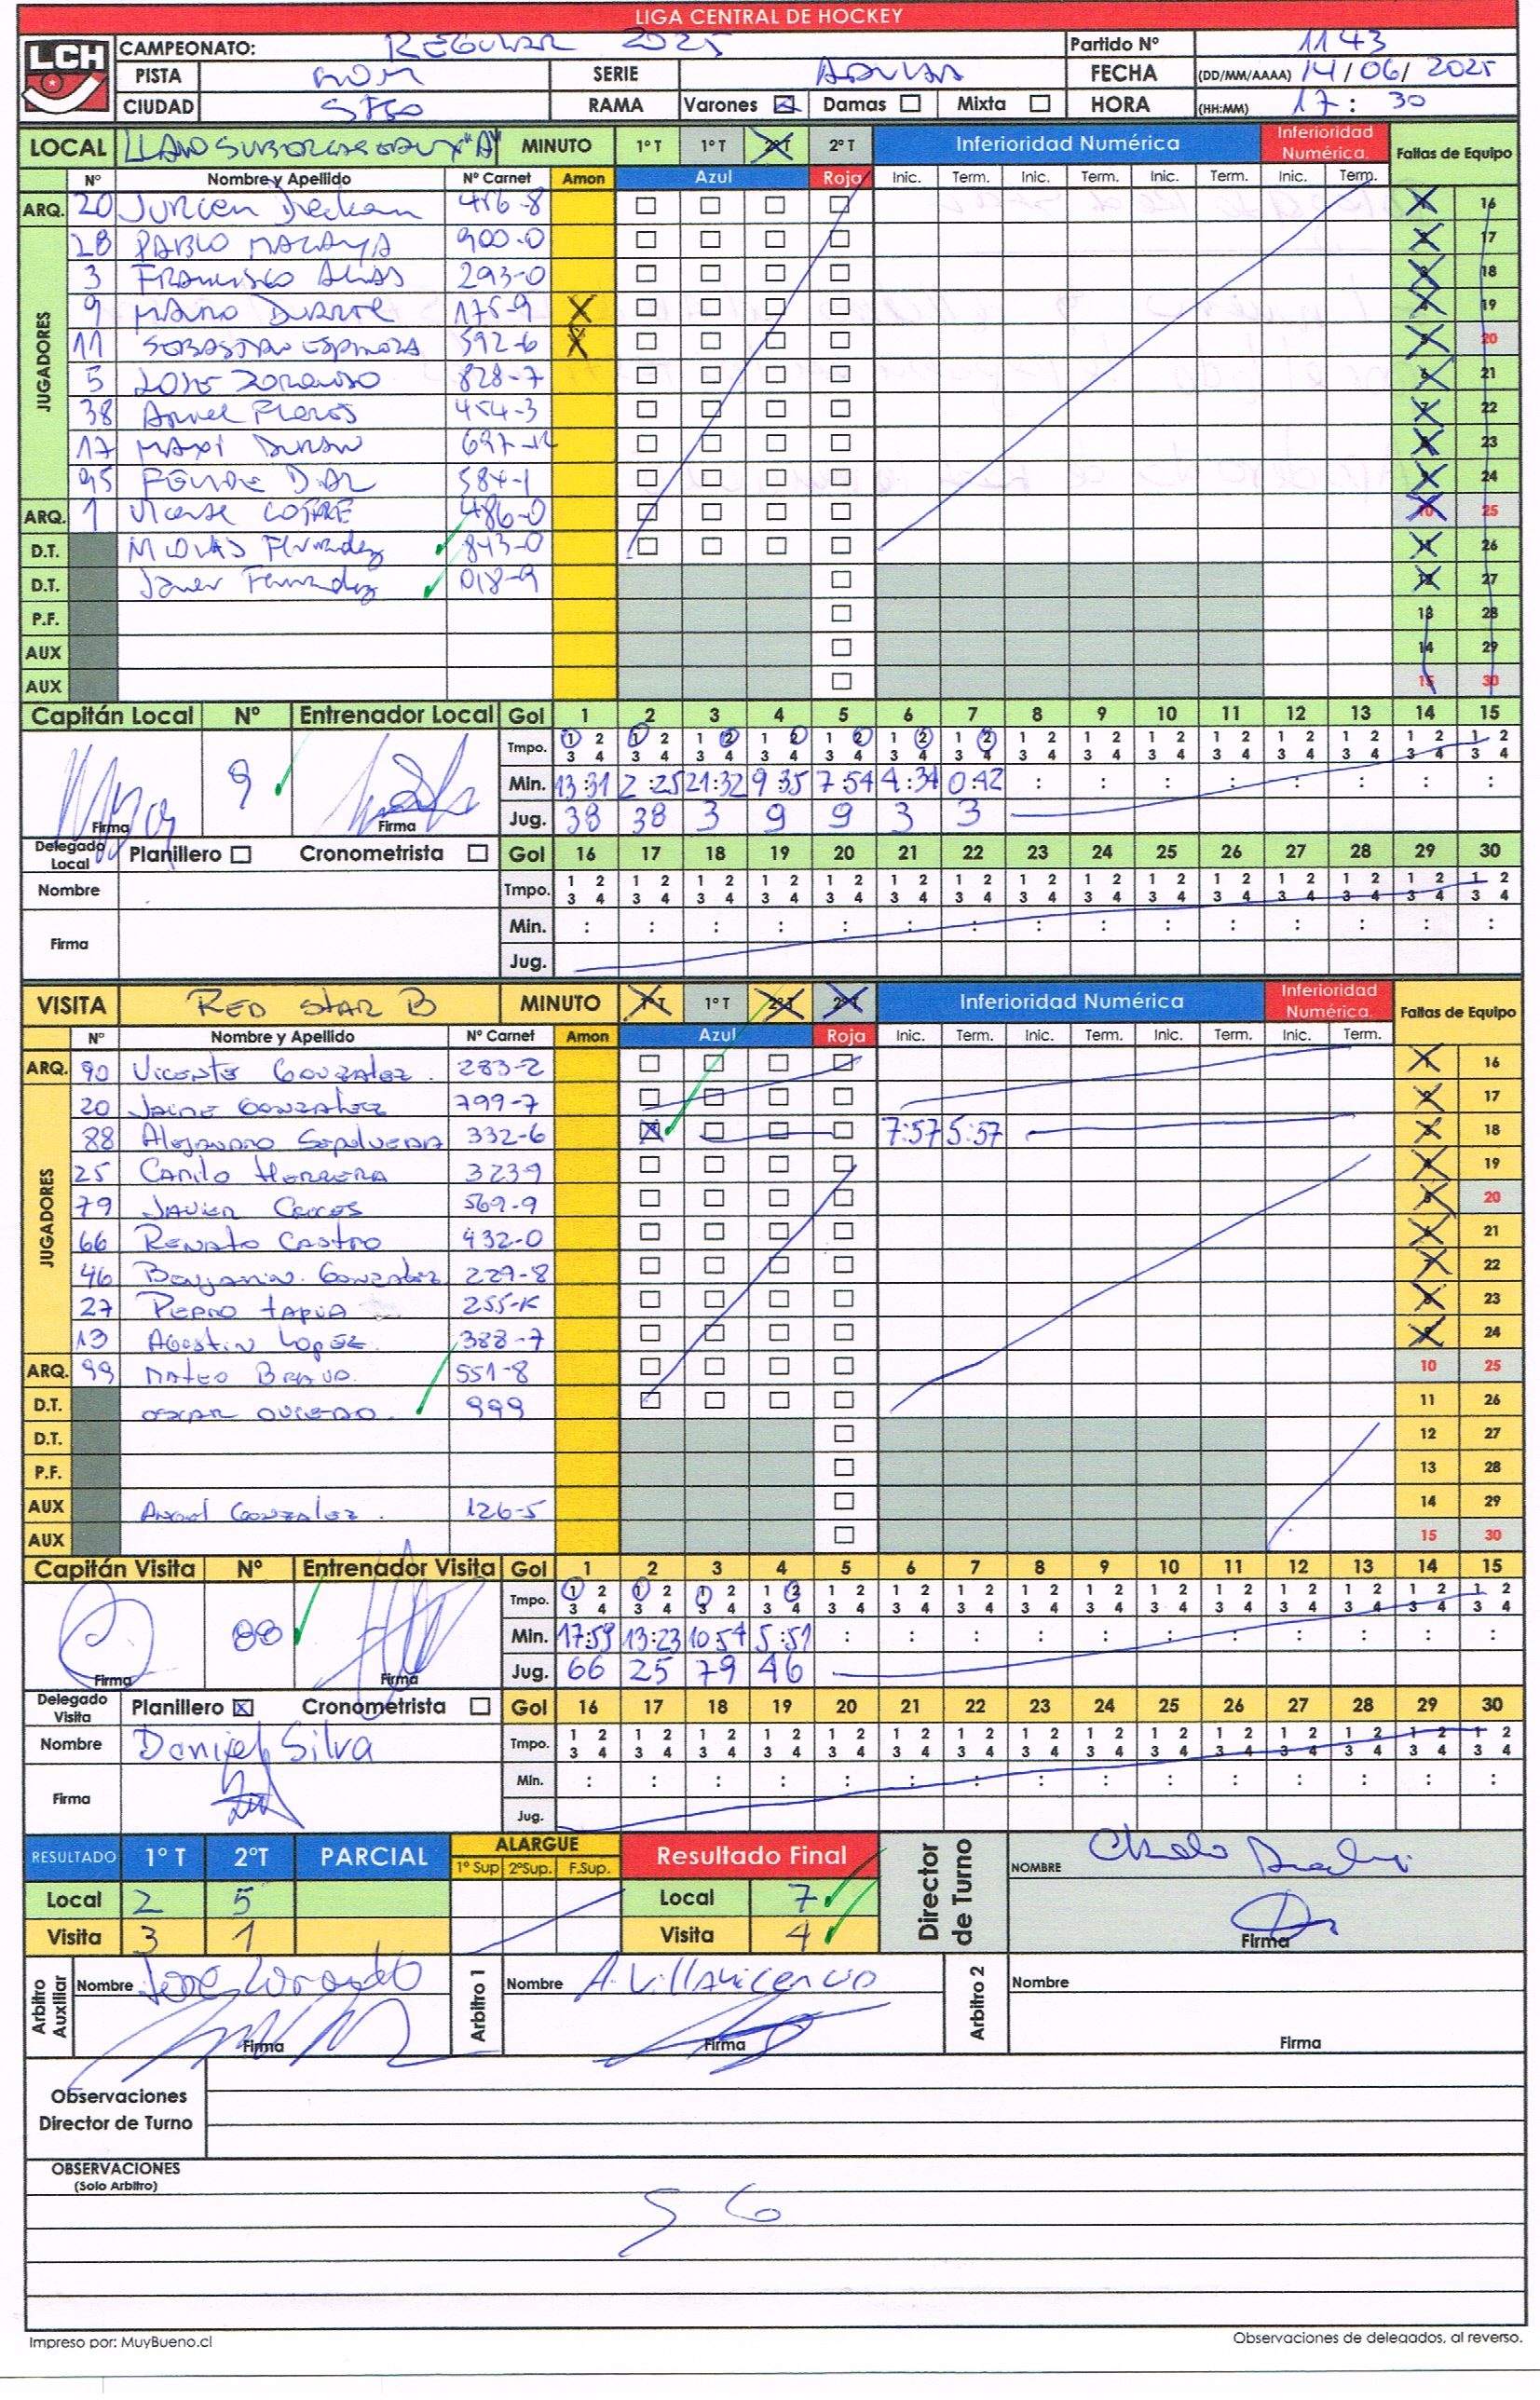 LIGA CENTRAL DE HOCKEY
LCH
CAMPEONATO: REGULAR 2025 Partido Nº 1143
PISTA SERIE FECHA (DD/MM/AAAA) 14/06/2025
CIUDAD STGO RAMA Varones Damas Mixta HORA (HH:MM) 17:30
LOCAL "A" MINUTO 1º T 1º T 2º T 2º T Inferioridad Numérica Inferioridad Numérica. Faltas de Equipo
Nº Nombre y Apellido Nº Carnet Amon Azul Roja Inic. Term. Inic. Term. Inic. Term. Inic. Term.
ARQ. 20 416-8 1 16
JUGADORES
28 PABLO MALAYA 900-0 2 17
3 FRANCISCO 293-0 3 18
9 MARIO DUARTE 175-9 X 4 19
11 SEBASTIAN ESPINOZA 592-6 X 5 20
5 828-7 6 21
38 454-3 7 22
17 MAXI DURAN 697-K 8 23
95 FELIPE DIAZ 584-1 9 24
ARQ. 1 VICENTE COFRE 486-0 10 25
D.T. Fernandez 843-0 11 26
D.T. Javier Fernandez 018-9 12 27
P.F. 13 28
AUX 14 29
AUX 15 30
Capitán Local Nº Entrenador Local Gol 1 2 3 4 5 6 7 8 9 10 11 12 13 14 15
Tmpo. 1 2 3 4 1 2 3 4 1 2 3 4 1 2 3 4 1 2 3 4 1 2 3 4 1 2 3 4 1 2 3 4 1 2 3 4 1 2 3 4 1 2 3 4 1 2 3 4 1 2 3 4 1 2 3 4 1 2 3 4
9 Min. 13:31 2:25 21:32 9:35 7:54 4:34 0:42 : : : : : : : :
Firma Firma Jug. 38 38 3 9 9 3 3
Delegado Local Planillero Cronometrista Gol 16 17 18 19 20 21 22 23 24 25 26 27 28 29 30
Nombre Tmpo. 1 2 3 4 1 2 3 4 1 2 3 4 1 2 3 4 1 2 3 4 1 2 3 4 1 2 3 4 1 2 3 4 1 2 3 4 1 2 3 4 1 2 3 4 1 2 3 4 1 2 3 4 1 2 3 4 1 2 3 4
Firma Min. : : : : : : : : : : : : : : :
Jug.
VISITA RED STAR B MINUTO 1º T 1º T 2º T 2º T Inferioridad Numérica Inferioridad Numérica. Faltas de Equipo
Nº Nombre y Apellido Nº Carnet Amon Azul Roja Inic. Term. Inic. Term. Inic. Term. Inic. Term.
ARQ. 90 VICENTE GONZALEZ. 283-2 1 16
JUGADORES
20 JAIME GONZALEZ 799-7 2 17
88 Alejandro Sepulveda 332-6 X 7:57 5:57 3 18
25 Camilo HERRERA 3239 4 19
79 JAVIER 569-9 5 20
66 RENATO CASTRO 432-0 6 21
46 Benjamin. Gonzalez 229-8 7 22
27 PEDRO TAPIA 255-K 8 23
13 Agustin Lopez. 388-7 9 24
ARQ. 99 MATEO BRAVO. 551-8 10 25
D.T. OSCAR OVIEDO. 999 11 26
D.T. 12 27
P.F. 13 28
AUX Angel Gonzalez. 126-5 14 29
AUX 15 30
Capitán Visita Nº Entrenador Visita Gol 1 2 3 4 5 6 7 8 9 10 11 12 13 14 15
Tmpo. 1 2 3 4 1 2 3 4 1 2 3 4 1 2 3 4 1 2 3 4 1 2 3 4 1 2 3 4 1 2 3 4 1 2 3 4 1 2 3 4 1 2 3 4 1 2 3 4 1 2 3 4 1 2 3 4 1 2 3 4
88 Min. 17:59 13:23 10:54 5:51 : : : : : : : : : : :
Firma Firma Jug. 66 25 79 46
Delegado Visita Planillero X Cronometrista Gol 16 17 18 19 20 21 22 23 24 25 26 27 28 29 30
Nombre Daniel Silva Tmpo. 1 2 3 4 1 2 3 4 1 2 3 4 1 2 3 4 1 2 3 4 1 2 3 4 1 2 3 4 1 2 3 4 1 2 3 4 1 2 3 4 1 2 3 4 1 2 3 4 1 2 3 4 1 2 3 4 1 2 3 4
Firma Min. : : : : : : : : : : : : : : :
Jug.
RESULTADO 1º T 2ºT PARCIAL ALARGUE 1º Sup 2ºSup. F.Sup. Resultado Final Director de Turno NOMBRE
Local 2 5 Local 7
Visita 3 1 Visita 4 Firma
Arbitro Auxiliar Nombre Arbitro 1 Nombre A. Villavicencio Arbitro 2 Nombre
Firma Firma Firma
Observaciones
Director de Turno
OBSERVACIONES
(Solo Arbitro)
Impreso por: MuyBueno.cl Observaciones de delegados, al reverso.